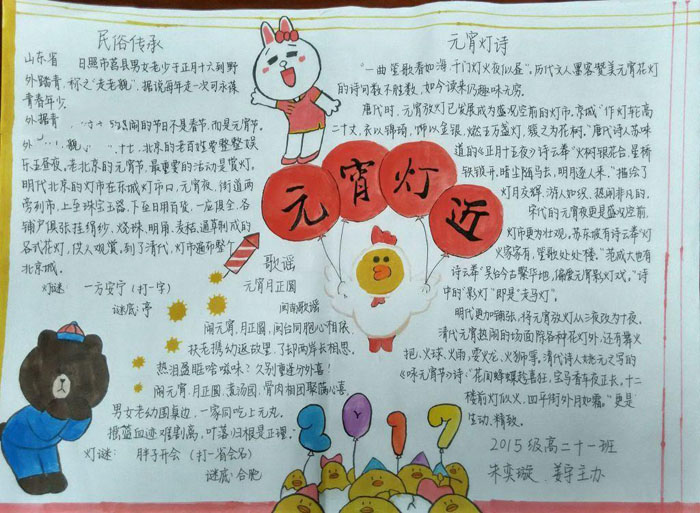 民俗传承
山东省 日照市莒县男女老少于正月十六到野
外踏青,称之"走老貌"。据说每年走一次可永葆
青春年少。
外据悉, 的最闹的节日不是春节,而是元宵节。
外 观 十七,北京的老百姓常整整娱
乐五昼夜。老北京的元宵节,最重要的活动是赏灯。
明代北京的灯市在东城灯市口,元宵夜,街道两
旁列市,上至珠宝玉器,下至日用百货,一应俱全。各
铺户俱张挂绢纱,烧珠,明角,麦秸,通草制成的
各式花灯,供人观赏,到了清代,灯市遍布整个
北京城。
灯谜 一方安宁(打一字)
谜底:亭
歌谣
元宵月正圆
闽南歌谣
闹元宵,月正圆,闽台同胞心相依,
扶老携幼返故里,了却两岸长相思。
热泪盈眶啥滋味?久别重逢分外喜!
闹元宵,月正圆,煮汤园,骨肉相团聚满心喜,
男女老幼围桌边,一家同吃上元丸。
摇篮血迹难割离,叶落归根是正理。
灯谜: 胖子开会 (打一省会名)
谜底:合肥
元宵灯近
元宵灯诗
"一曲笙歌春如海,千门灯火夜似昼"。历代文人墨客赞美元宵花灯
的诗句数不胜数,如今读来仍趣味无穷。
唐代时,元宵放灯已发展成为盛况空前的灯市。京城"作灯轮高
二十丈,衣以锦绮,饰以金银,燃五万盏灯,簇之为花树。"唐代诗人苏味
道的《正月十五夜》诗云:"火树银花合,星桥
铁锁开,暗尘随马去,明月逐人来。"描绘了
灯月交辉,游人如织,热闹非凡的,
宋代的元宵夜更是盛况空前,
灯市更为壮观。苏东坡有诗云:"灯
火家家有,笙歌处处楼。"范成大也有
诗云:"吴台今古繁华地,偏爱元宵影灯戏。"诗
中的"影灯"即是"走马灯"。
明代更加铺张,将元宵放灯从三夜改为十夜。
清代元宵热闹的场面除各种花灯外,还有舞火
把、火球、火雨,耍火龙、火狮等,清代诗人姚元之写的
《咏元宵节》诗:"花间蜂蝶趁喜狂,宝马香车夜正长,十二
楼前灯似火,四平街外月如霜。"更是
生动、精致。
2017
2015级高二十一班
朱奕璇 姜宇主办